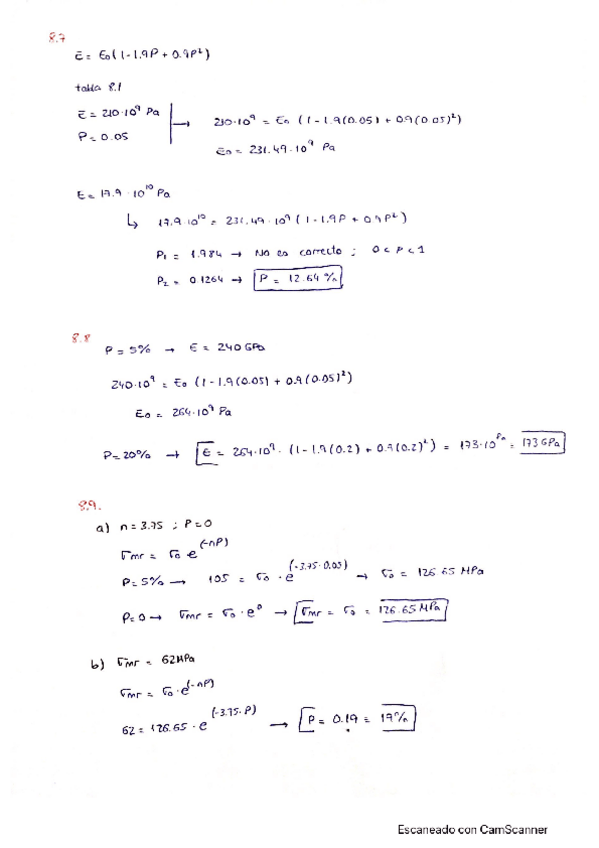 8.7
E = E₀(1-1.9P + 0.9P²)
tabla 8.1
E = 210·10⁹ Pa
P = 0.05
→ 210·10⁹ = E₀ (1-1.9(0.05) + 0.9(0.05)²)
E₀ = 231.49·10⁹ Pa
E = 17.9·10¹⁰ Pa
↳ 17.9·10¹⁰ = 231.49·10⁹ (1-1.9P + 0.9P²)
P₁ = 1.984 → No es correcto ; 0 < P < 1
P₂ = 0.1264 → P = 12.64 %
8.8
P = 5% → E = 240 GPa
240·10⁹ = E₀ (1-1.9(0.05) + 0.9(0.05)²)
E₀ = 264·10⁹ Pa
P=20% → E = 264·10⁹ · (1-1.9(0.2) + 0.9(0.2)²) = 173·10⁹ Pa = 173 GPa
8.9.
a) n = 3.75 ; P=0
σmr = σ₀ e^(-nP)
P=5% → 105 = σ₀ · e^(-3.75·0.05) → σ₀ = 126.65 MPa
P=0 → σmr = σ₀ · e⁰ → σmr = σ₀ = 126.65 MPa
b) σmr = 62MPa
σmr = σ₀·e^(-nP)
62 = 126.65 · e^(-3.75·P) → P = 0.19 = 19%
Escaneado con CamScanner